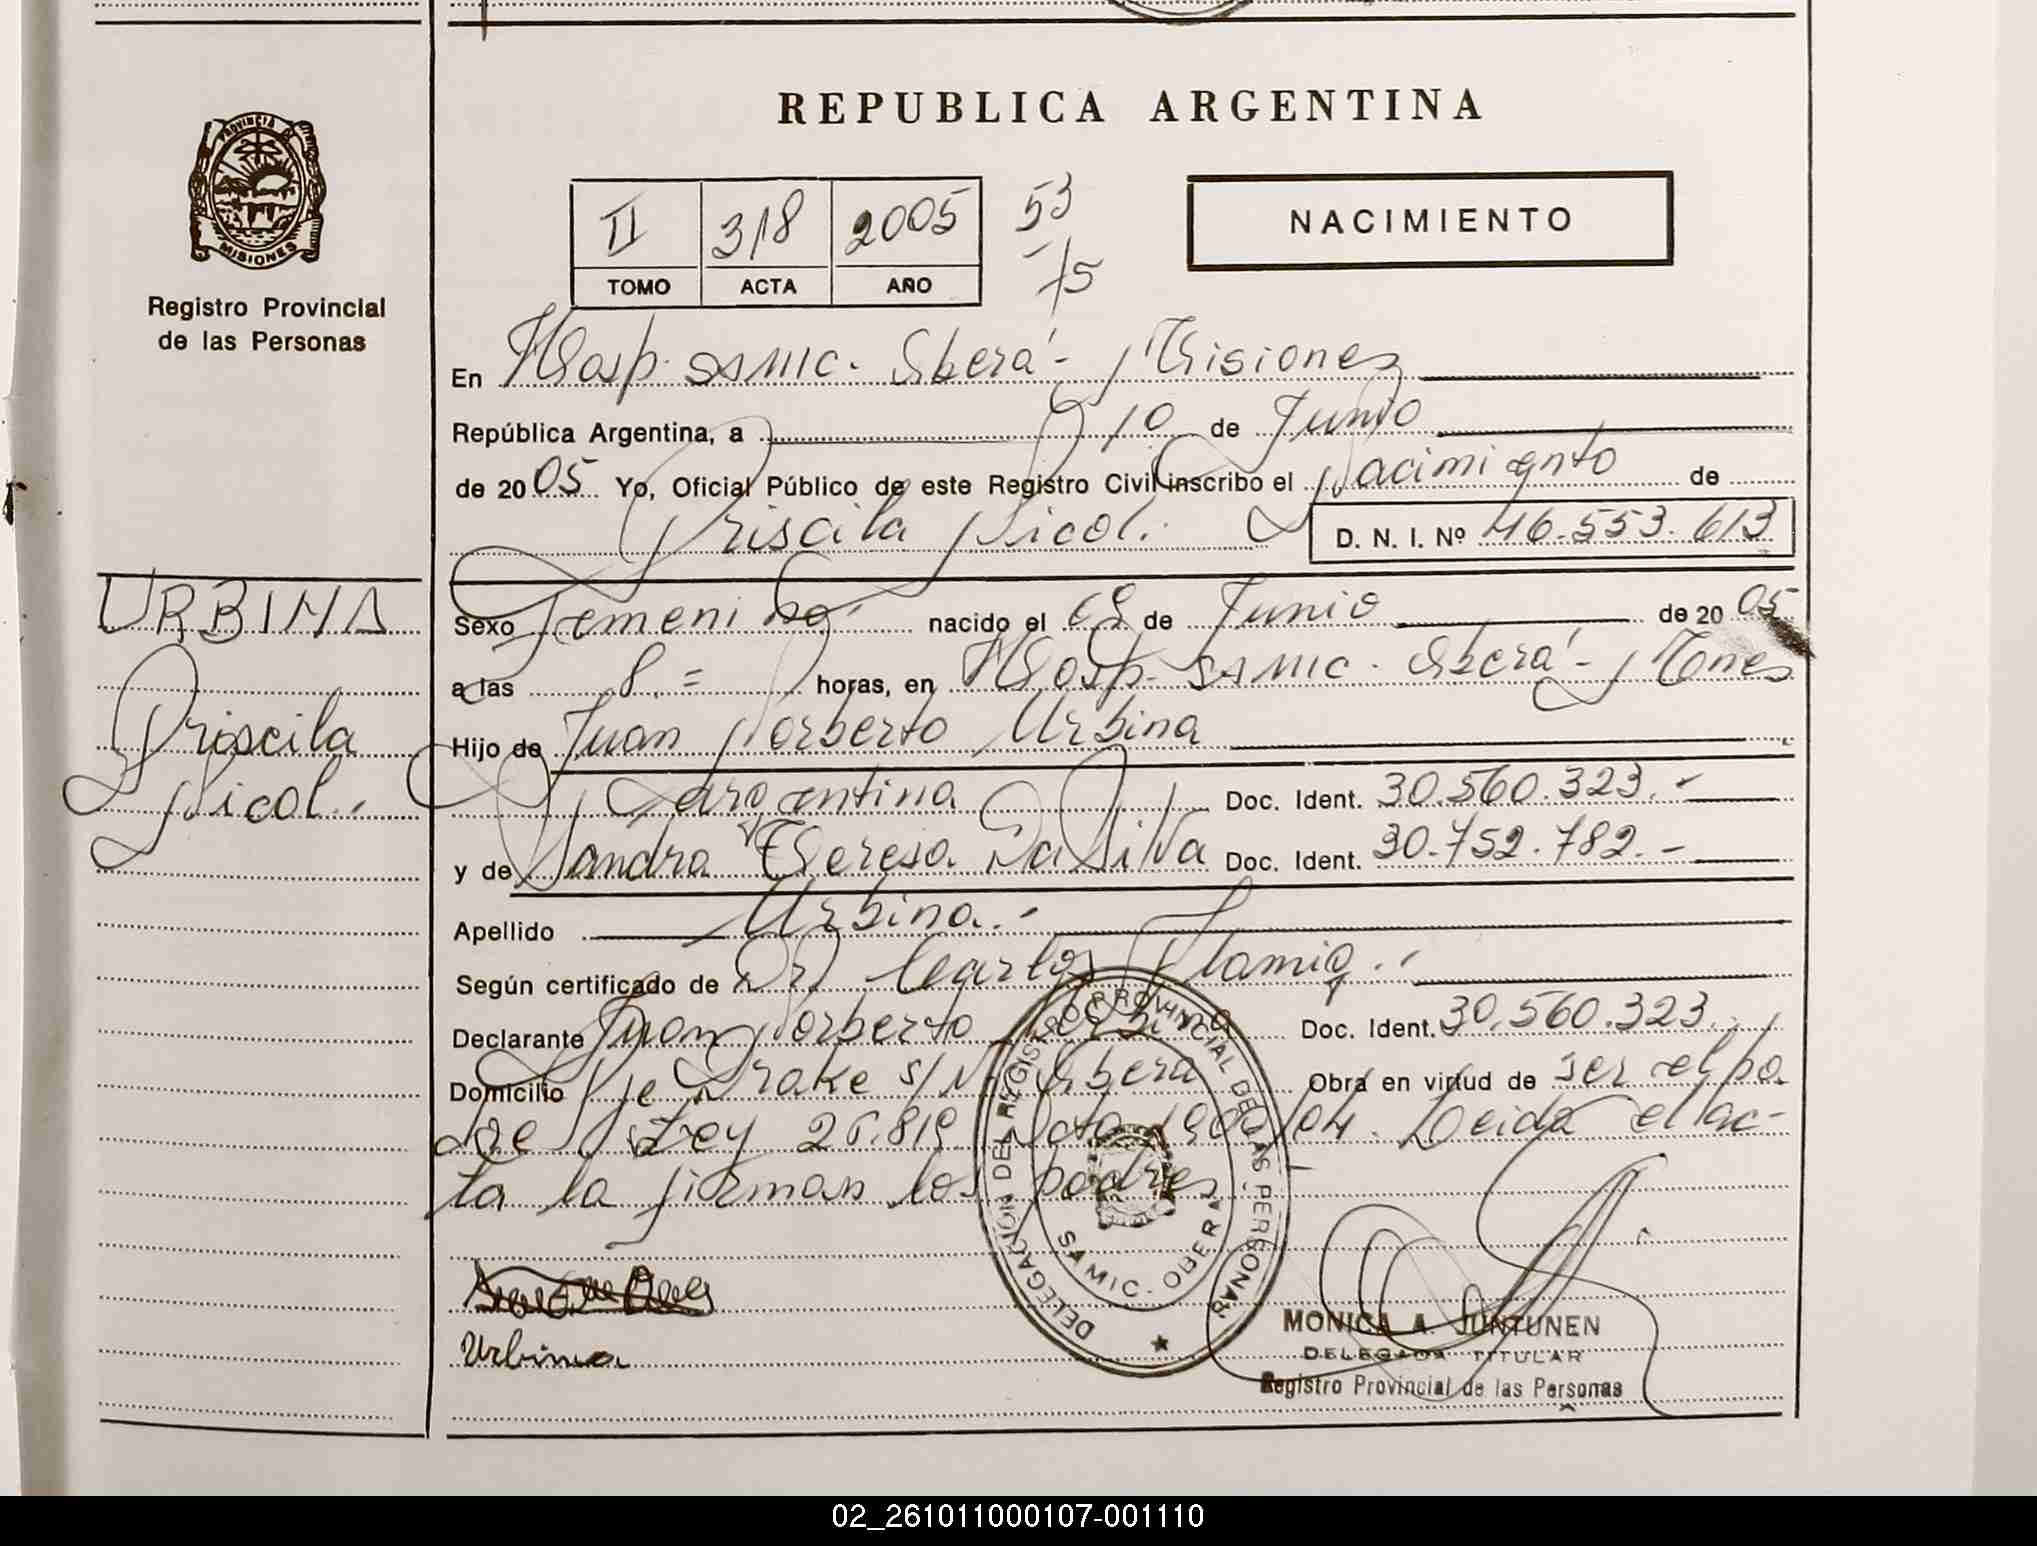 REPUBLICA ARGENTINA
PROVINCIA
MISIONES
Registro Provincial
de las Personas
II 318 2005 53
TOMO ACTA AÑO 75
NACIMIENTO
En Hosp. SAMIC. Oberá - Misiones
República Argentina, a 10 de Junio
de 2005 Yo, Oficial Público de este Registro Civil inscribo el Nacimiento de
Priscila Nicol. D. N. I. Nº 46.553.613
URBINA
Priscila
Nicol.
Sexo Femenino nacido el 09 de Junio de 2005
a las 8.= horas, en Hosp. SAMIC. Oberá - Mones
Hijo de Juan Norberto Urbina
Argentina Doc. Ident. 30.560.323.-
y de Sandra Teresa Da Silva Doc. Ident. 30.752.782.-
Apellido Urbina.-
Según certificado de Dr Carlos
Declarante Juan Norberto Urbina Doc. Ident. 30.560.323.
Domicilio Drake s/N. Oberá Obra en virtud de ser el pa-
dre Ley 26.819 Leida el ac-
ta la firman los padres
DELEGACIÓN DEL REGISTRO PROVINCIAL DE LAS PERSONAS
SAMIC. OBERA
Urbina
MONICA A. JUNTUNEN
DELEGADA TITULAR
Registro Provincial de las Personas
02_261011000107-001110